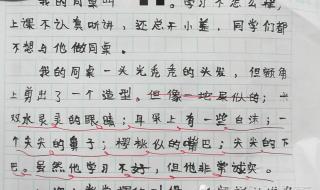 我的同桌叫 学习不怎么样，
上课不认真听讲，还总开小差，同学们都
不想与他做同桌。
我的同桌一头光秃秃的头发，但额角
上剪出了一个造型。但像一地屎似的；
双水灵灵的眼睛；耳朵上有一些白法；一
个尖尖的鼻子；樱桃似的嘴巴；尖尖的下
巴。虽然他学习不好，但他非常诚实。